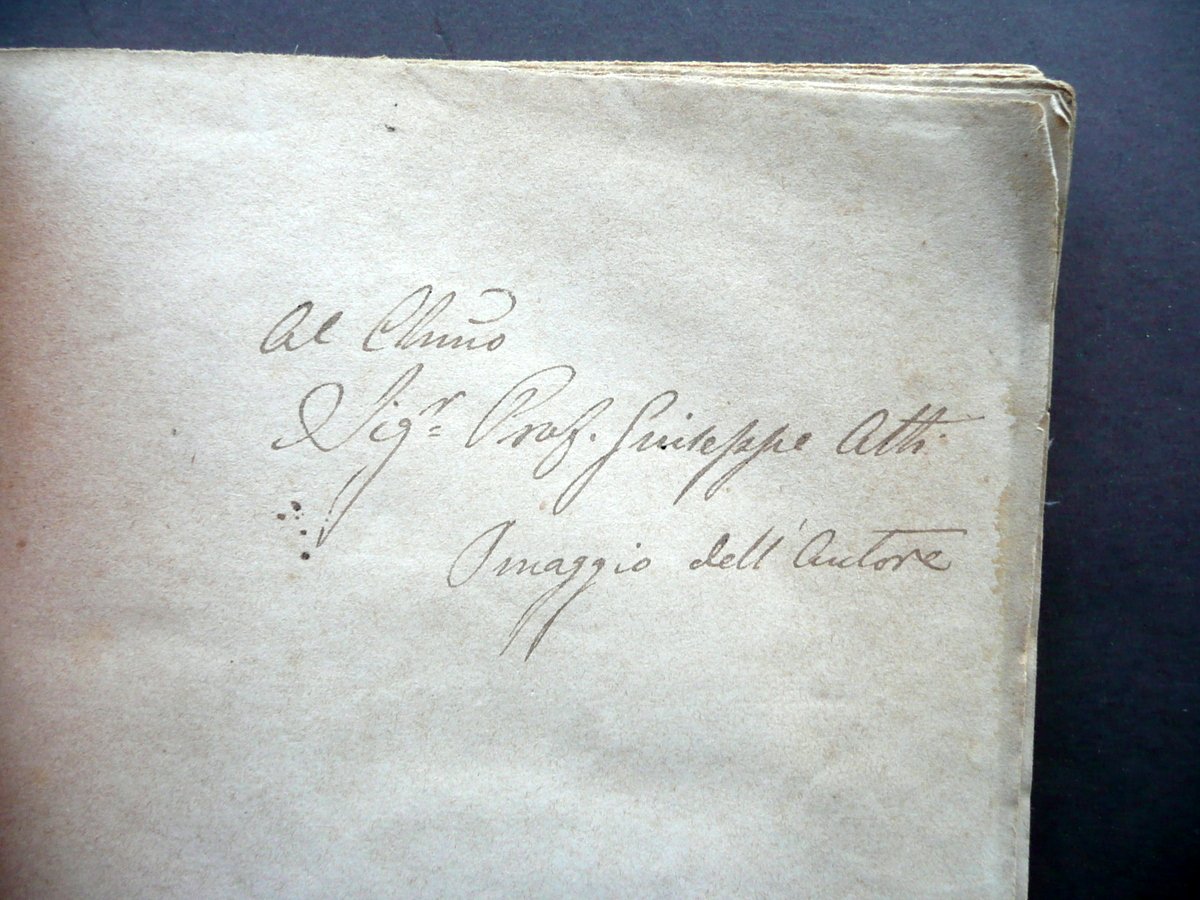 Al Chm̃o
Sig.r Prof. Giuseppe Atti
Omaggio dell'Autore